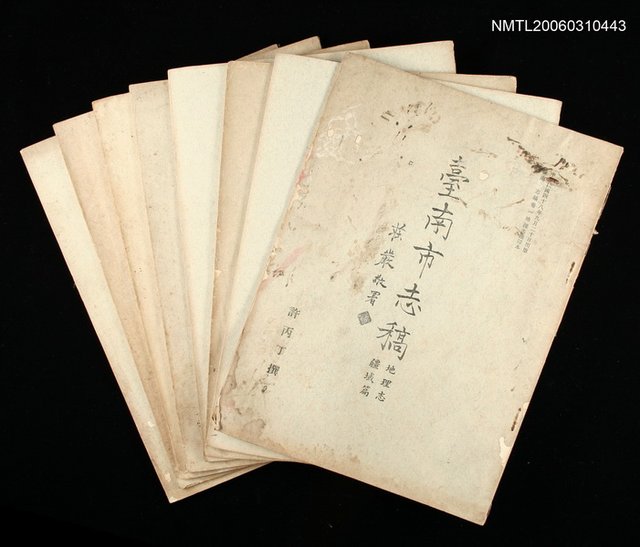 NMTL20060310443
臺南市志稿
地理志
疆域篇
葉嚴敬署
許丙丁撰